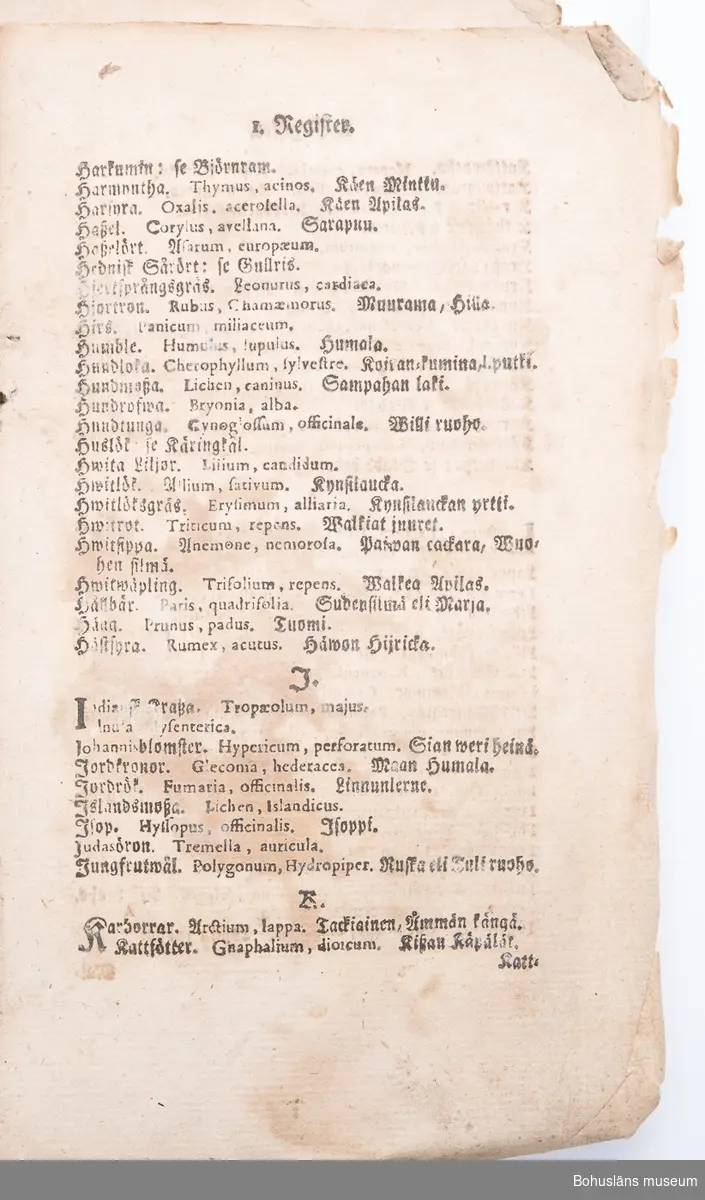 1. Register.
Harkumin: se Björnram.
Harmyntha. Thymus, acinos. Käen Minttu.
Harsyra. Oxalis, acetosella. Käen Apilas.
Haßel. Corylus, avellana. Sarapuu.
Haßelört. Asarum, europæum.
Hednisk Sårört: se Gullris.
Hjertsprångsgräs. Leonurus, cardiaca.
Hjortron. Rubus, Chamæmorus. Muurama, Hilla.
Hirs. Panicum, miliaceum.
Humble. Humulus, lupulus. Humala.
Hundloka. Chærophyllum, sylvestre. Koiran-kumina, l. putki.
Hundmoßa. Lichen, caninus. Sampahan laki.
Hundrofwa. Bryonia, alba.
Hundtunga. Cynoglossum, officinale. Willi ruoho.
Huslök: se Käringkål.
Hwita Liljor. Lilium, candidum.
Hwitlök. Allium, sativum. Kynsilaucka.
Hwitlöksgräs. Erysimum, alliaria. Kynsilauckan yrtti.
Hwitrot. Triticum, repens. Walkiat juuret.
Hwitsippa. Anemone, nemorosa. Päiwän cackara, Wuo-
hen silmä.
Hwitwäpling. Trifolium, repens. Walkea Apilas.
Häkbär. Paris, quadrifolia. Sudensilmä eli Marja.
Hägg. Prunus, padus. Tuomi.
Hästsyra. Rumex, acutus. Häwon Hijricka.
J.
Indiansk Kraßa. Tropæolum, majus.
Inula dysenterica.
Johannisblomster. Hypericum, perforatum. Sian weri heinä.
Jordkronor. Glecoma, hederacea. Maan Humala.
Jordrök. Fumaria, officinalis. Linnunlerne.
Islandsmoßa. Lichen, Islandicus.
Isop. Hyssopus, officinalis. Isoppi.
Judasöron. Tremella, auricula.
Jungfrutwål. Polygonum, Hydropiper. Ruska eli Tuli ruoho.
K.
Karborrar. Arctium, lappa. Tackiainen, Ämmän kängä.
Kattfötter. Gnaphalium, dioicum. Kißan Käpälät.
Katt-
Bohusläns museum